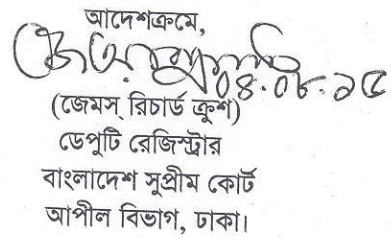 আদেশক্রমে,
০৪.০৮.১৫
(জেমস্ রিচার্ড ক্রুশ)
ডেপুটি রেজিস্ট্রার
বাংলাদেশ সুপ্রীম কোর্ট
আপীল বিভাগ, ঢাকা।